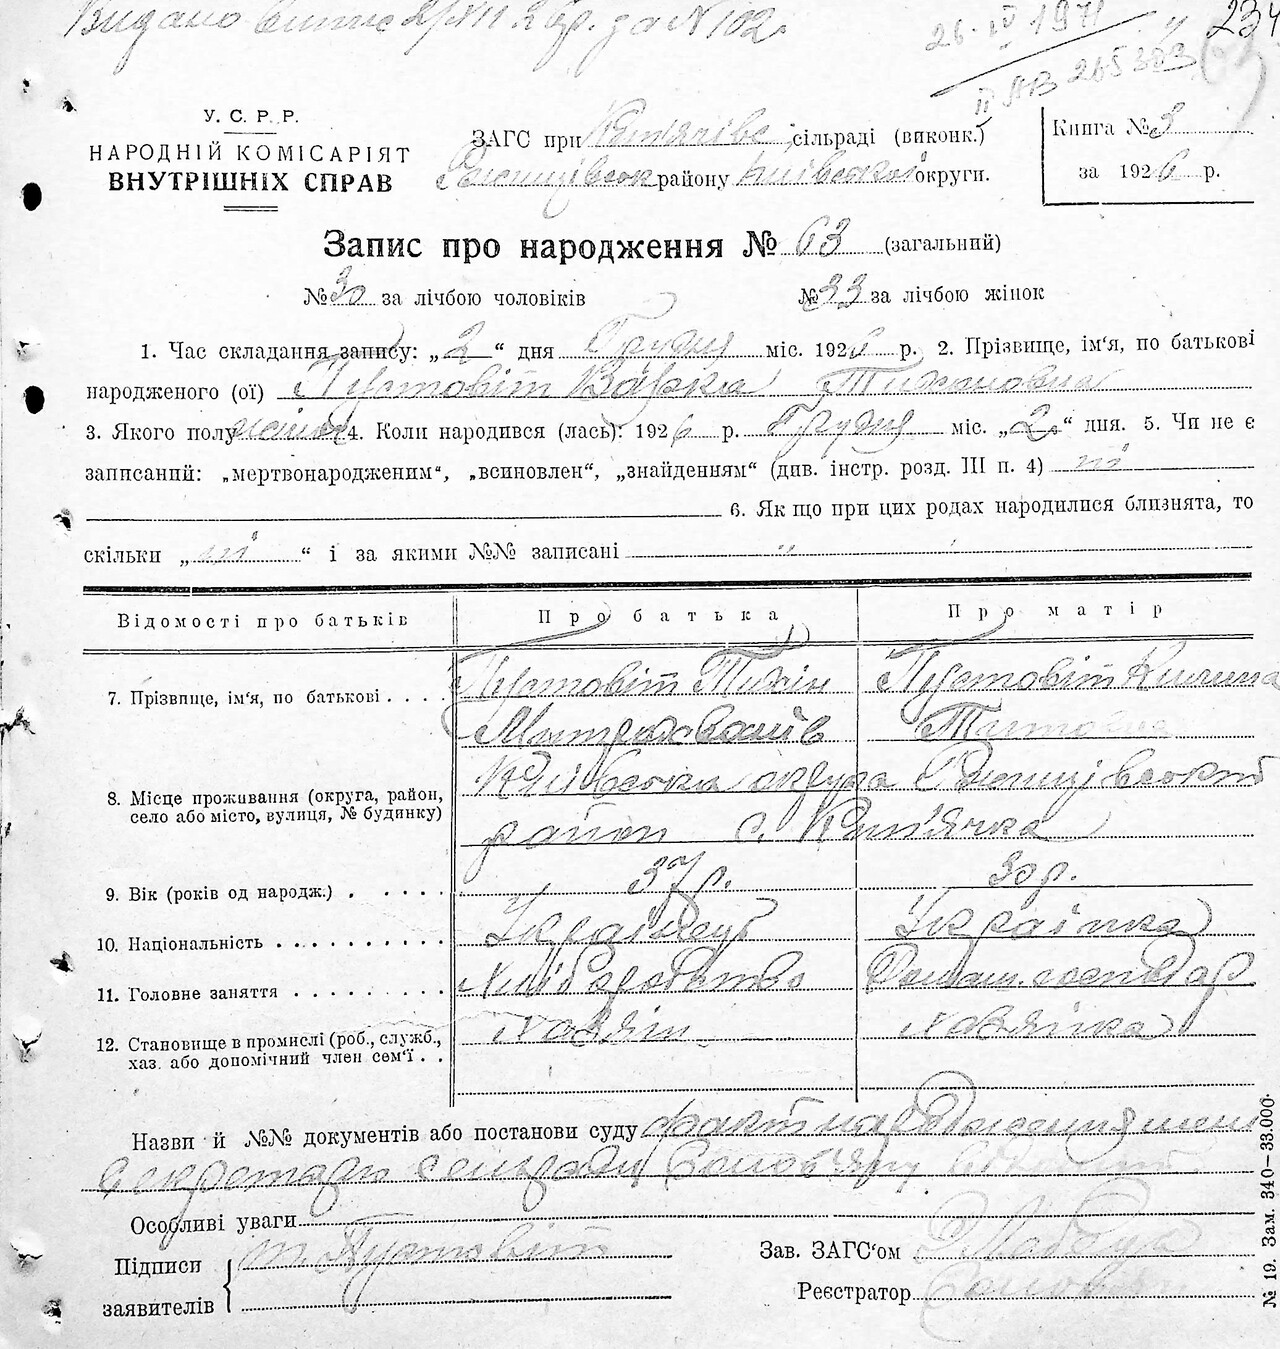 Видано 2/XII 26р. за №102.
26.IV 1971
234
II АВ 265303
У. С. Р. Р.
НАРОДНІЙ КОМІСАРІЯТ
ВНУТРІШНІХ СПРАВ
ЗАГС при сільраді (виконк.)
району Київської округи.
Книга № 3
за 1926 р.
Запис про народження № 63 (загальний)
№ 30 за лічбою чоловіків № 33 за лічбою жінок
1. Час складання запису: „2“ дня Грудня міс. 1926 р. 2. Прізвище, ім'я, по батькові
народженого (ої) Пустовіт Варка Тихоновна
3. Якого полу жіноч 4. Коли народився (лась): 1926 р. Грудня міс. „2“ дня. 5. Чи не є
записаний: „мертвонародженим“, „всиновлен“, „знайденням“ (див. інстр. розд. III п. 4) ні
6. Як що при цих родах народилися близнята, то
скільки „ні“ і за якими №№ записані „
Відомості про батьків Про батька Про матір
7. Прізвище, ім'я, по батькові . . . . Пустовіт Тихін Пустовіт
Митрохванів
8. Місце проживання (округа, район, село або місто, вулиця, № будинку) Київська округа
район с.
9. Вік (років од народж.) . . . . . 37 р. 30 р.
10. Національність . . . . . . . . . . Українець Українка
11. Головне заняття . . . . . . . . Хліборобство Домаш. господар
12. Становище в промислі (роб., служб., хаз. або допомічний член сем'ї . . Хазяїн Хазяйка
Назви й №№ документів або постанови суду факт народження
секретарю сельради
Особливі уваги
Підписи Т. Пустовіт Зав. ЗАГС'ом
заявителів Реєстратор
№ 19. Зам. 340—33.000.